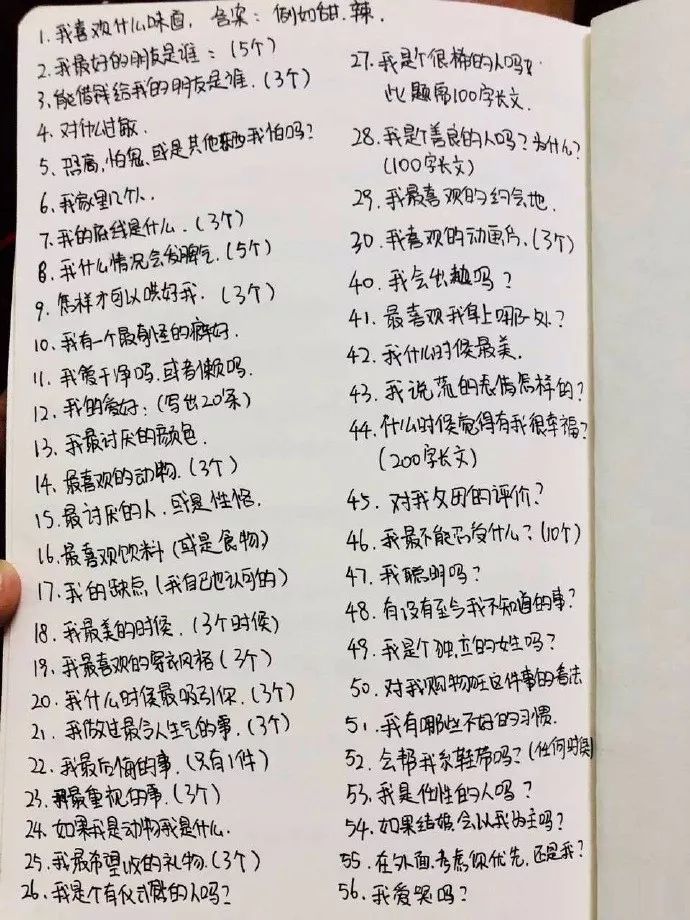 1. 我喜欢什么味道, 答案: 例如甜.辣.
2. 我最好的朋友是谁: (5个)
3. 能借钱给我的朋友是谁. (3个)
4. 对什么过敏.
5. 恐高, 怕鬼. 或是其他东西我怕吗?
6. 我家里几个人.
7. 我的底线是什么. (3个)
8. 我什么情况会发脾气. (5个)
9. 怎样才可以哄好我. (3个)
10. 我有一个最奇怪的癖好.
11. 我爱干净吗. 或者懒吗.
12. 我的爱好: (写出20条)
13. 我最讨厌的颜色.
14. 最喜欢的动物. (3个)
15. 最讨厌的人. 或是性格.
16. 最喜欢饮料 (或是食物)
17. 我的缺点 (我自己也认可的)
18. 我最美的时候. (3个时候)
19. 我最喜欢的穿衣风格 (3个)
20. 我什么时候最吸引你. (3个)
21. 我做过最令人生气的事. (3个)
22. 我最后悔的事. (只有1件)
23. 我最重视的事. (3个)
24. 如果我是动物我是什么.
25. 我最希望收的礼物. (3个)
26. 我是个有仪式感的人吗?
27. 我是个很棒的人吗?
此题需100字长文.
28. 我是个善良的人吗? 为什么?
(100字长文)
29. 我最喜欢的约会地.
30. 我喜欢的动画片. (3个)
40. 我会出轨吗?
41. 最喜欢我身上哪个处?
42. 我什么时候最美.
43. 我说谎的表情怎样的?
44. 什么时候觉得有我很幸福?
(200字长文)
45. 对我父母的评价?
46. 我最不能忍受什么? (10个)
47. 我聪明吗?
48. 有没有至今我不知道的事?
49. 我是个独立的女生吗?
50. 对我购物狂这件事的看法
51. 我有哪些不好的习惯.
52. 会帮我系鞋带吗? (任何时候)
53. 我是任性的人吗?
54. 如果结婚会以我为主吗?
55. 在外面. 考虑你优先. 还是我?
56. 我爱哭吗?